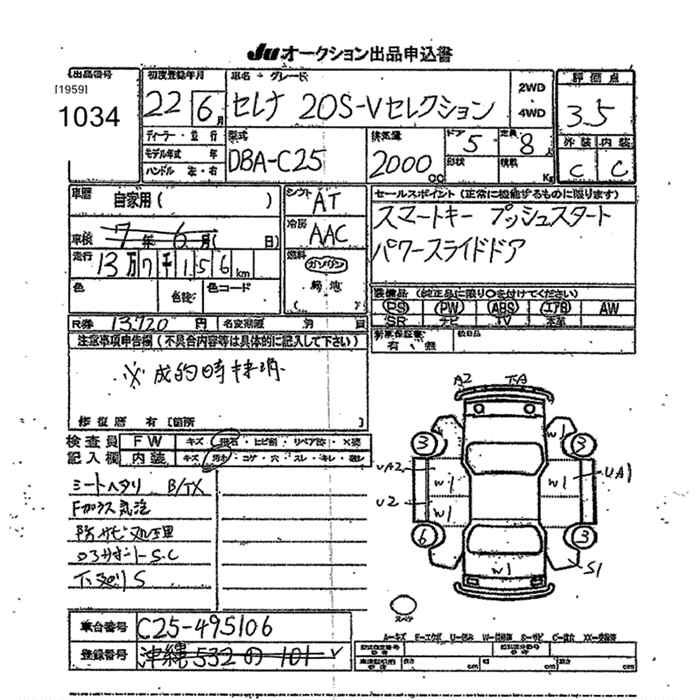 JU オークション出品申込書
出品番号 初度登録年月 車名・グレード 2WD 評価点
[1959]
1034 22 6月 セレナ 20S-Vセレクション 4WD 3.5
ディーラー・並行 型式 排気量 ドア 定員 外装 内装
モデル年式 年 DBA-C25 2000cc 5 8人 C C
ハンドル 左・右 形状 積載 Kg
車歴 自家用( ) シフト AT セールスポイント(正常に機能するものに限ります)
車検 7年6月( 日) 冷房 AAC スマートキー プッシュスタート
走行 13万7千156km 燃料 ガソリン パワースライドドア
色 色替 色コード 軽油
装備品(純正品に限り○を付けてください)
PS PW ABS エアB AW
SR ナビ TV 本革
R券 13,720円 名変期限 月 日 新車保証書 有・無 後日品
注意事項申告欄(不具合内容等は具体的に記入して下さい)
修復歴 有[箇所 ]
検査員 FW キズ・飛石・ヒビ割・リペア跡・X要
記入欄 内装 キズ・汚れ・コゲ・穴・スレ・キレ
シートヘタリ B/TX
Fガラス気泡
防サビ処理
下廻りS
A2
3 W1 3
UA2 W1 W1 UA1
U2 W1
6 W1 3
S1
スペア
A=キズ E=エクボ U=凹み S=サビ C=腐食
車台番号 C25-495106
登録番号 沖縄 532 の 101